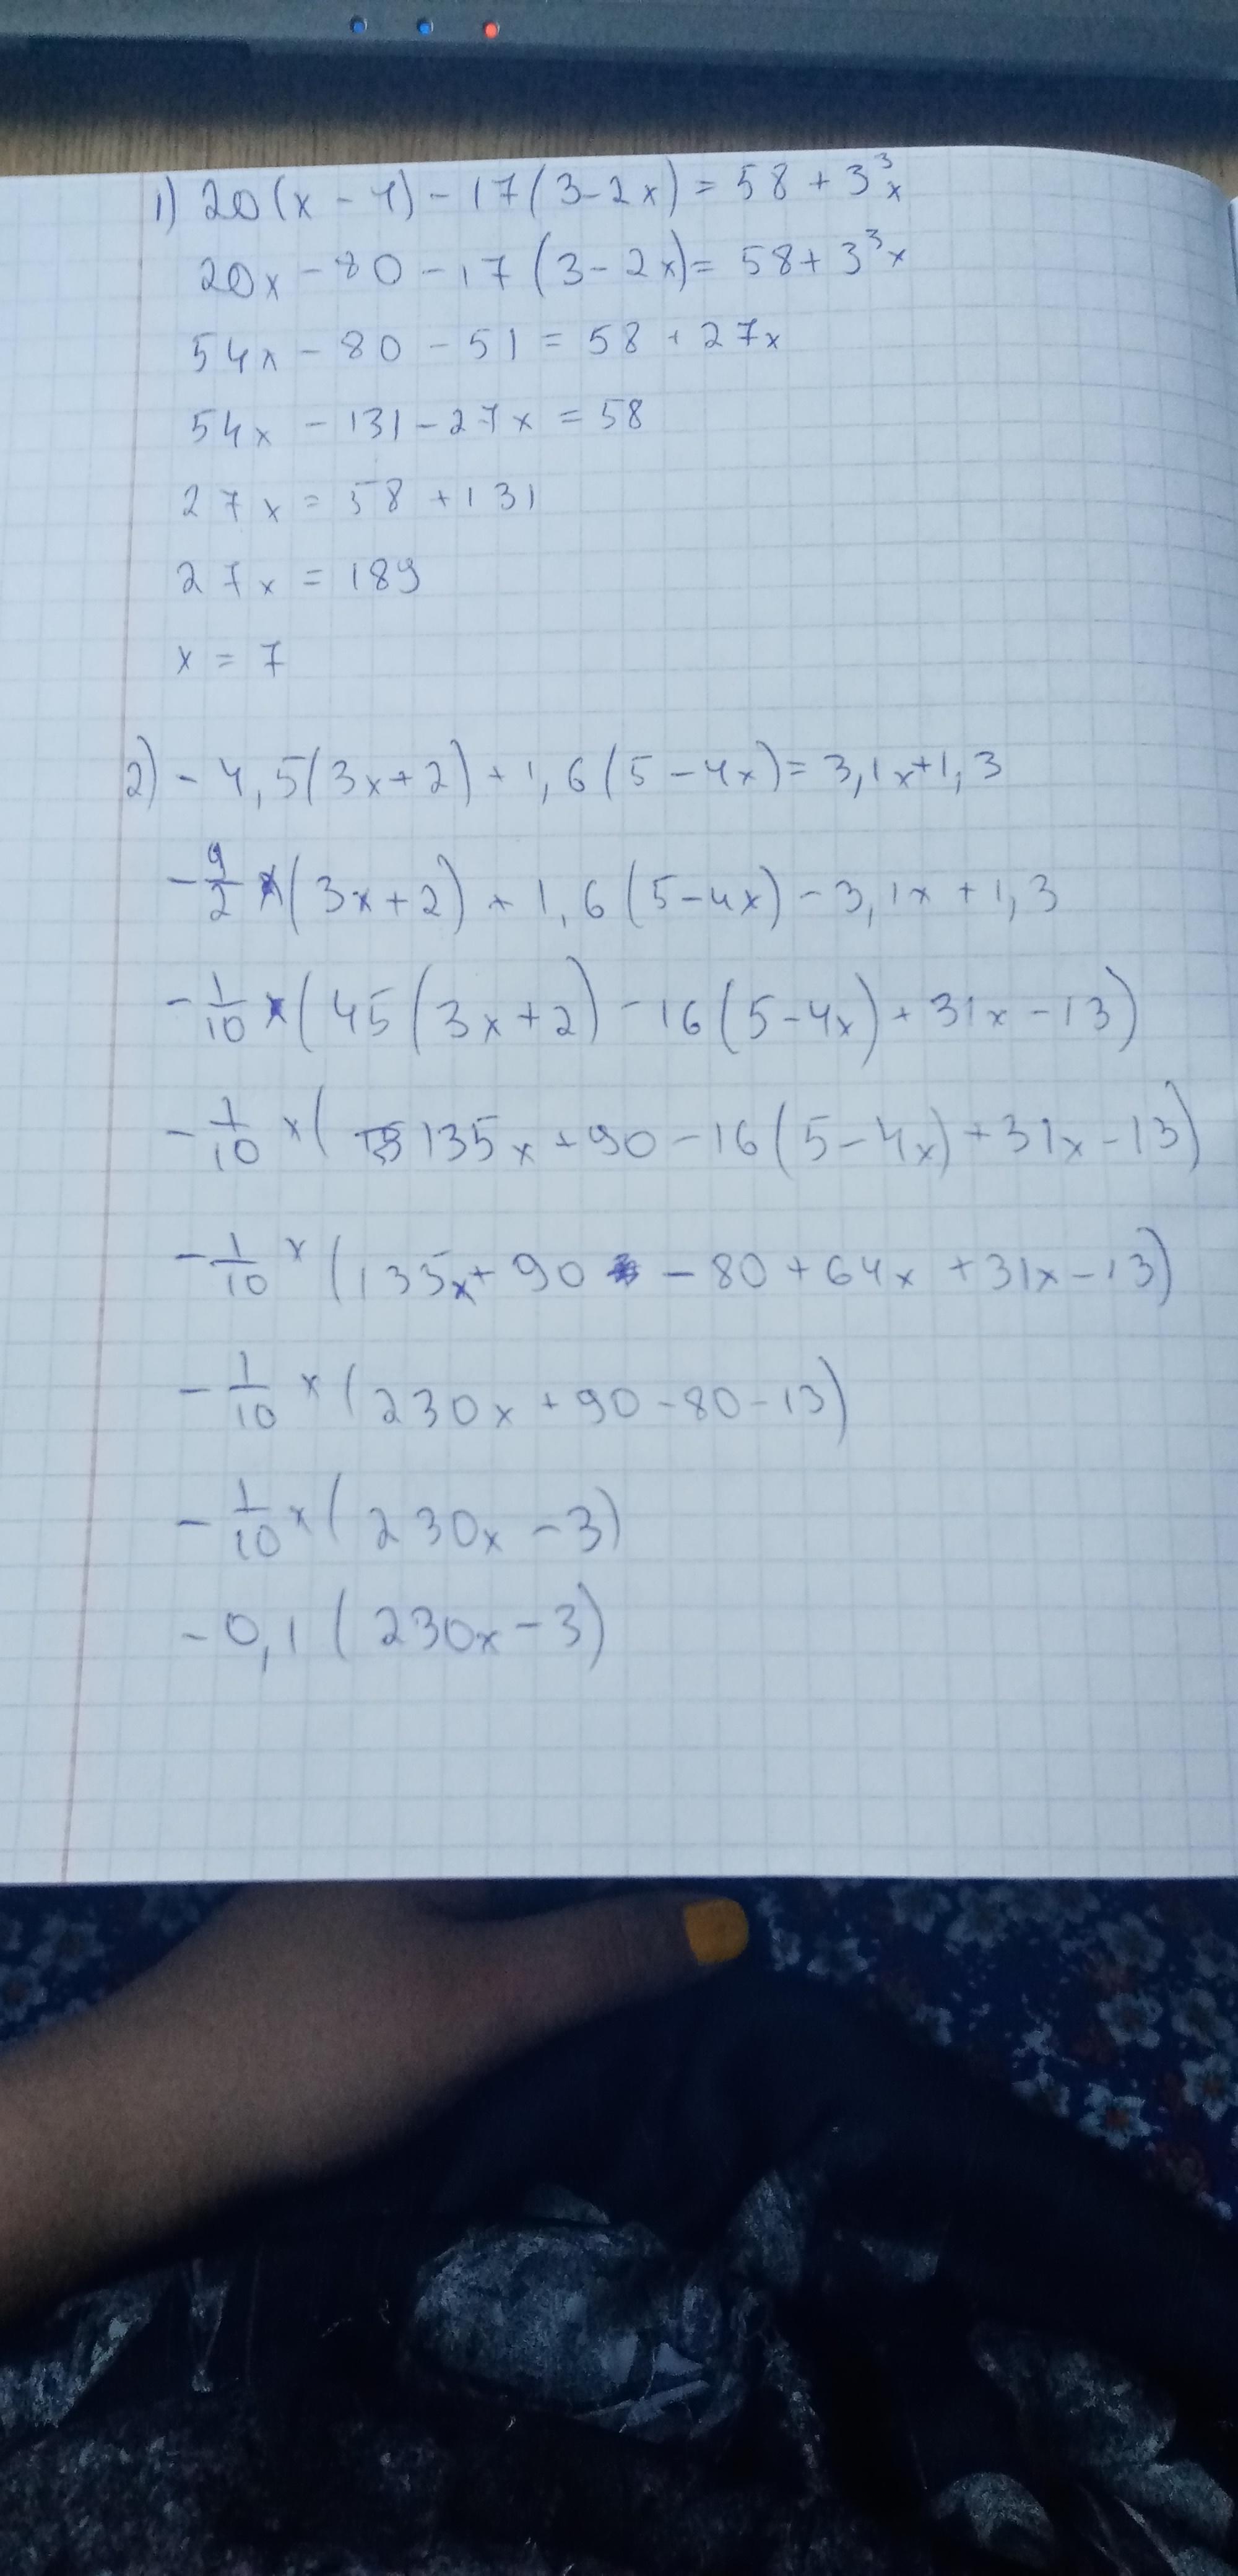 1) 20(x - 4) - 17(3-2x) = 58 + 3³x
20x - 80 - 17(3-2x) = 58 + 3³x
54x - 80 - 51 = 58 + 27x
54x - 131 - 27x = 58
27x = 58 + 131
27x = 189
x = 7
2) - 4,5(3x+2) + 1,6(5-4x) = 3,1x+1,3
- 9/2 x (3x+2) + 1,6(5-4x) - 3,1x + 1,3
- 1/10 x (45(3x+2) - 16(5-4x) + 31x - 13)
- 1/10 x (135x + 90 - 16(5-4x) + 31x - 13)
- 1/10 x (135x + 90 - 80 + 64x + 31x - 13)
- 1/10 x (230x + 90 - 80 - 13)
- 1/10 x (230x - 3)
- 0,1 (230x - 3)